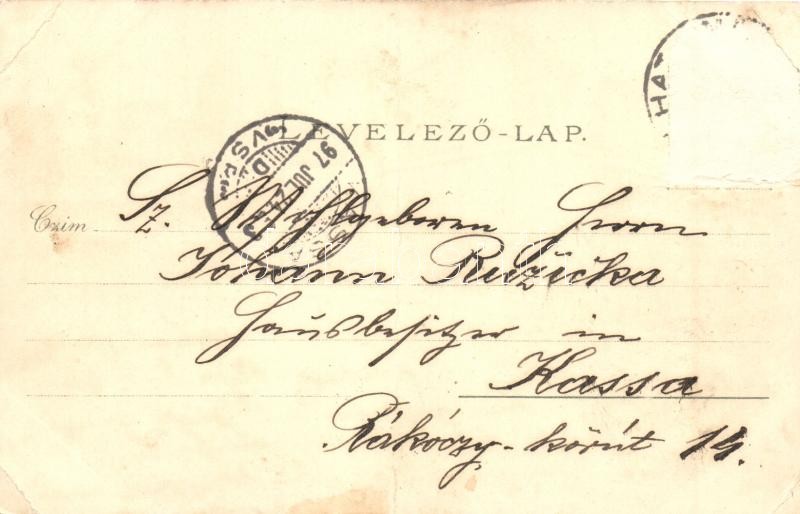 LEVELEZŐ-LAP.
97 JUL
Czim
Sr. Wohlgeboren Herrn
Johann Ružička
Hausbesitzer in
Kassa
Rákóczy-körút 14.